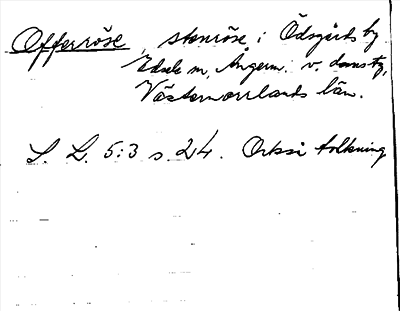 Offerröse, stenröse i Ödsgårds by
Edsele sn, Ångerm. v. domstg,
Västernorrlands län.
S. L. 5:3 s. 24. Också tolkning